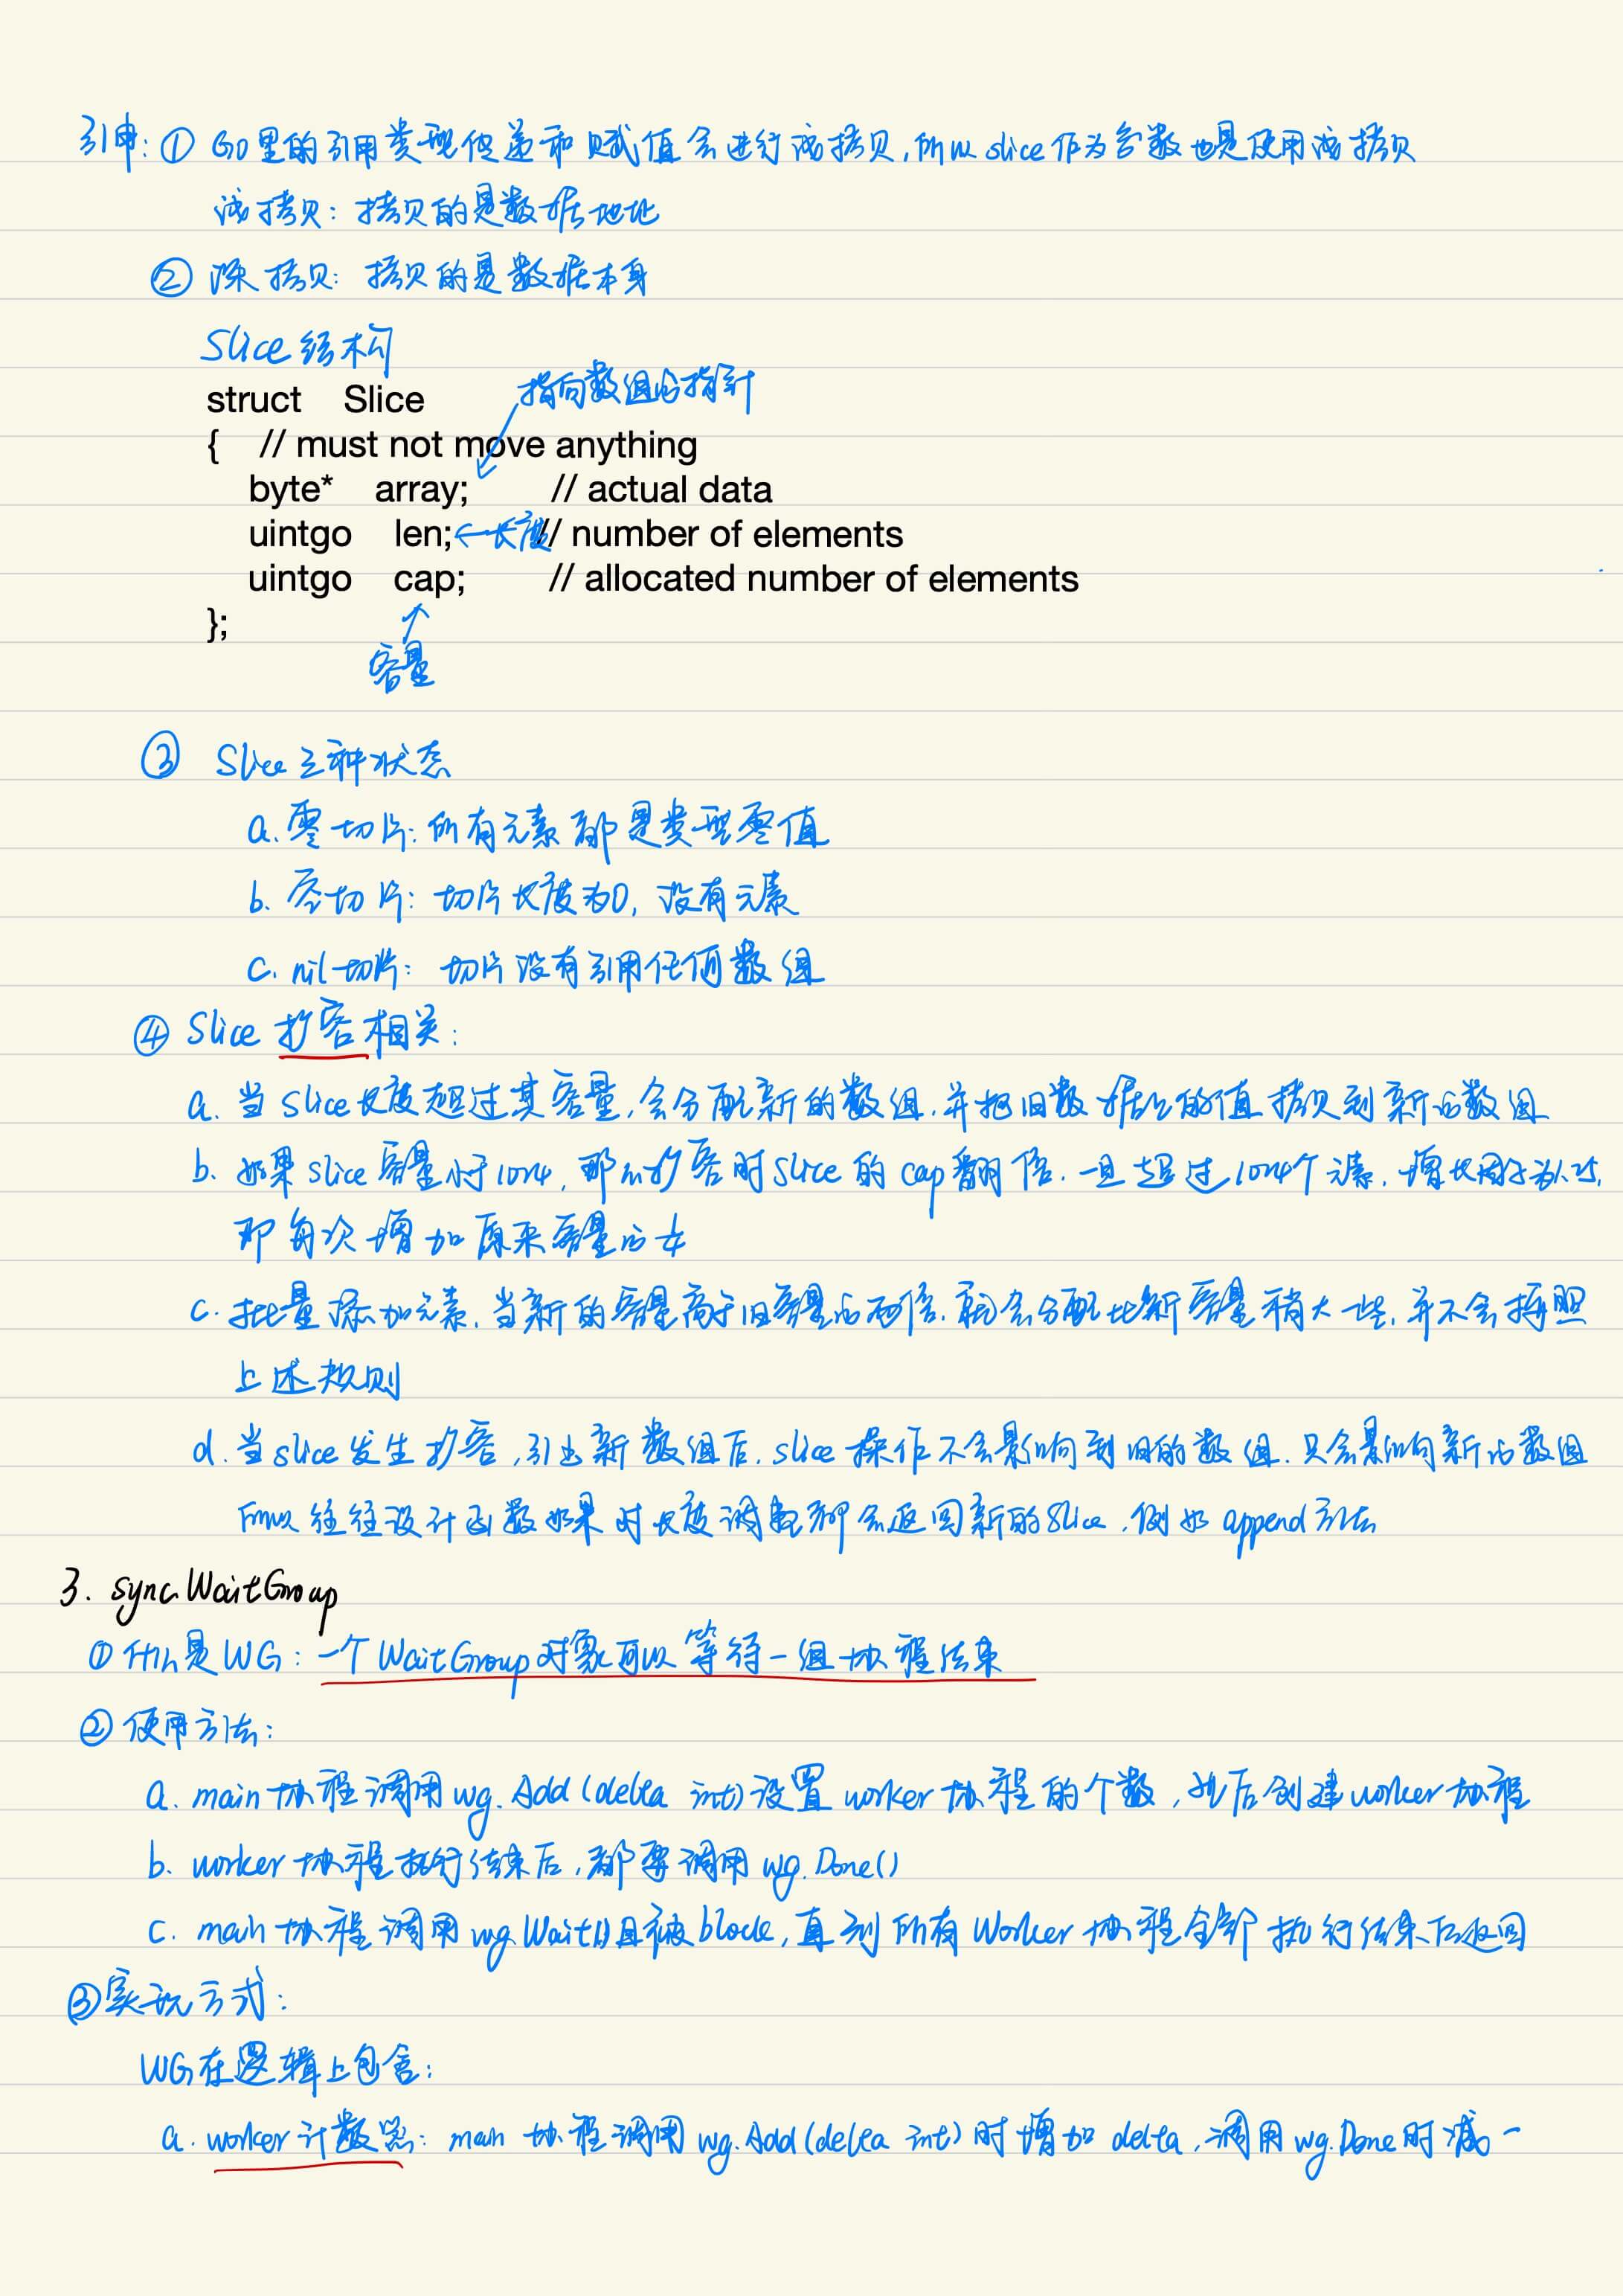 引申：① Go里的引用类型传递和赋值会进行浅拷贝，所以slice作为参数也是使用浅拷贝
浅拷贝：拷贝的是数据地址
② 深拷贝：拷贝的是数据本身
Slice结构
指向数组的指针
struct Slice
{ // must not move anything
byte* array; // actual data
uintgo len; ←长度 // number of elements
uintgo cap; // allocated number of elements
};
容量
③ Slice三种状态
a. 零切片：所有元素都是类型零值
b. 空切片：切片长度为0，没有元素
c. nil切片：切片没有引用任何数组
④ Slice扩容相关：
a. 当slice长度超过其容量，会分配新的数组，并把旧数据上的值拷贝到新的数组
b. 如果slice容量小于1024，那么扩容时slice的cap翻倍．一旦超过1024个元素，增长因子为1.25，
即每次增加原来容量的1/4
c. 批量添加元素，当新的容量高于旧容量的两倍，就会分配比新容量稍大一些，并不会按照
上述规则
d. 当slice发生扩容，引出新数组后，slice操作不会影响到旧的数组，只会影响新的数组
所以往往设计函数如果对长度调整都会返回新的Slice，例如append方法
3. sync.WaitGroup
① 什么是WG：一个WaitGroup对象可以等待一组协程结束
② 使用方法：
a. main协程调用wg.Add(delta int)设置worker协程的个数，然后创建worker协程
b. worker协程执行结束后，都要调用wg.Done()
c. main协程调用wg.Wait()且被block，直到所有Worker协程全部执行结束后返回
③ 实现方式：
WG在逻辑上包含：
a. worker计数器：main协程调用wg.Add(delta int)时增加delta，调用wg.Done时减一